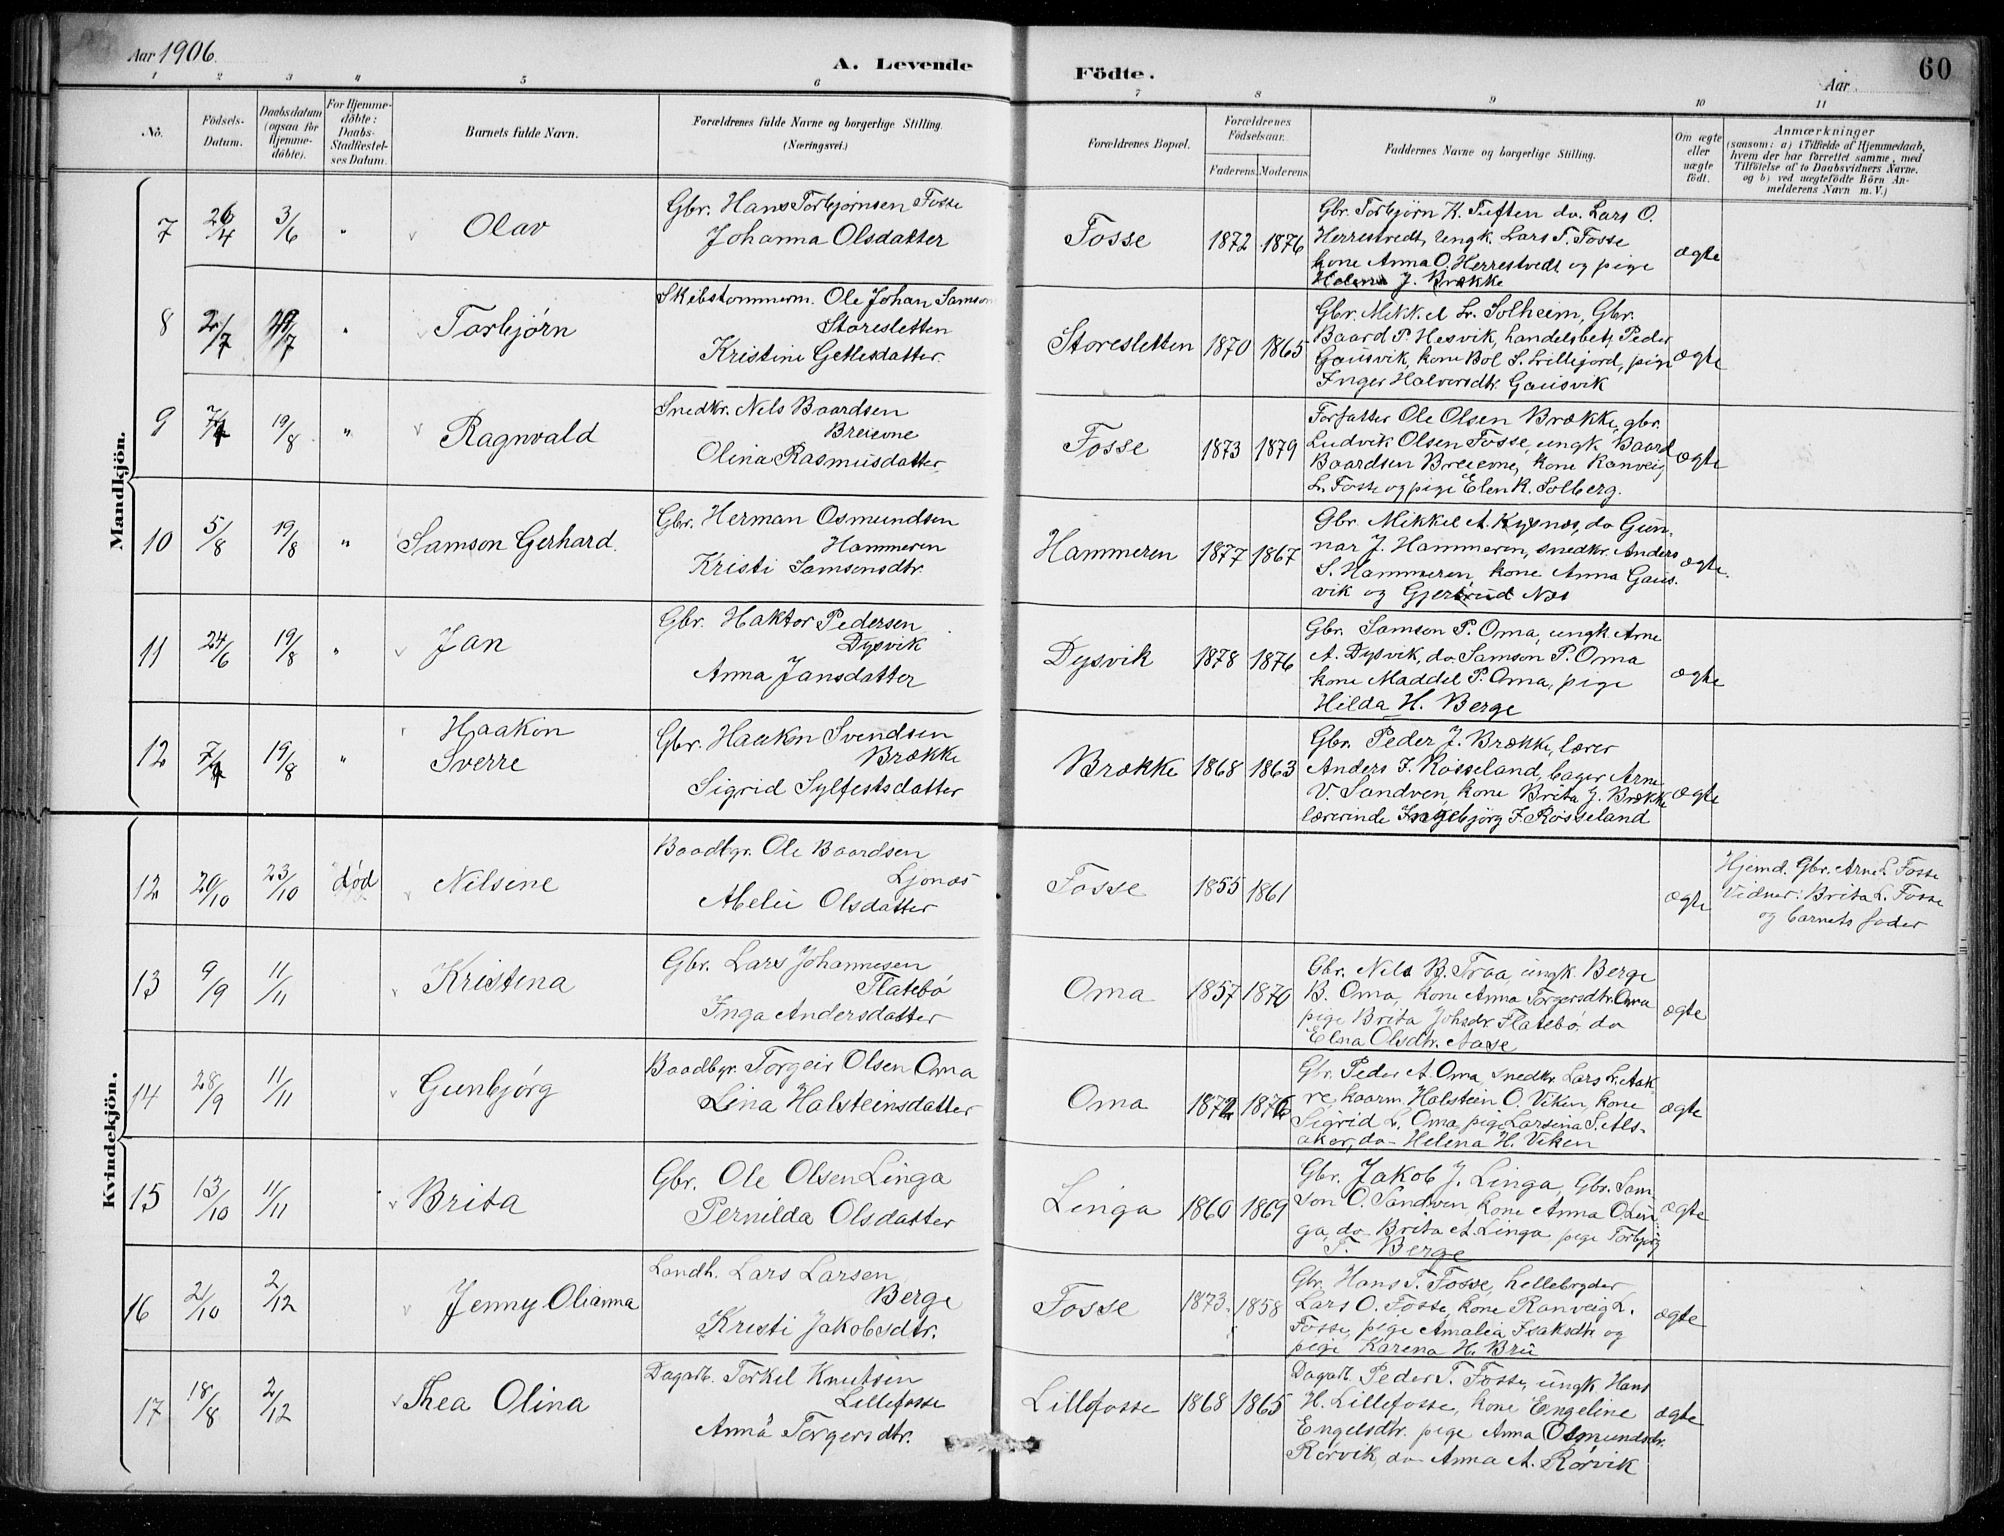 Aar 1906.
A. Levende
Födte.
Aar
60
1 2 3 4 5 6 7 8 9 10 11
No.
Födsels-
Datum.
Daabsdatum
(ogsaa for
Hjemme-
döbte).
For Hjemme-
döbte:
Daabs-
Stadfæstel-
ses Datum.
Barnets fulde Navn.
Forældrenes fulde Navne og borgerlige Stilling.
(Næringsvei.)
Forældrenes Bopæl.
Forældrenes
Födselsaar.
Faderens. Moderens.
Faddernes Navne og borgerlige Stilling.
Om ægte
eller
uægte
født.
Anmærkninger
(saasom: a) i Tilfælde af Hjemmedaab,
hvem der har forrettet samme, med
Tilföielse af to Daabsvidners Navne,
og b) ved uægtefödte Börn An-
melderens Navn m. V.)
Mandkjön.
7 26/4 3/6 " Olav
Gbr. Hans Torbjørnsen Fosse
Johanna Olsdatter
Fosse 1872 1876
Gbr. Torbjørn K. Tuften do. Lars O.
Herrestvedt, ungk. Lars T. Fosse
kone Anna O. Herrestvedt og pige
Helena J. Brække
ægte
8 2/7 /7 " Torbjørn
Skibstømmerm. Ole Johan Samson
Storesletten
Kristine Getlesdatter
Storesletten 1870 1865
Gbr. Mikkel L. Solheim, Gbr.
Baard P. Hesvik, handelsbet. Peder
Gausvik, kone Bol S. Lillefjord, pige
Inger Halversdtr. Gausvik
ægte
9 19/8 " Ragnvald
Snedkr. Nels Baardsen
Breievne
Olina Rasmusdatter
Fosse 1873 1879
Forfatter Ole Olsen Brække, gbr.
Ludvik Olsen Fosse, ungk. Baard
Baardsen Breievne, kone Ranveig
L. Fosse og pige Elen K. Solberg.
ægte
10 5/8 19/8 " Samson Gerhard.
Gbr. Herman Osmundsen
Hammeren
Kristi Samsonsdtr.
Hammeren 1877 1867
Gbr. Mikkel A. Kysnes, do Gun-
nar J. Hammeren, snedkr. Anders
S. Hammeren, kone Anna Gaus-
vik og Gjertrud Nes
ægte.
11 24/6 19/8 " Jan
Gbr. Haktor Pedersen
Dysvik
Anna Jansdatter
Dysvik 1878 1876
Gbr. Samson P. Oma, ungk Arne
A. Dysvik, do Samson P. Oma
kone Maddel P. Oma, pige
Hilda H. Berge
ægte
12 19/8 " Haakon
Sverre
Gbr. Haakon Svendsen
Brække
Sigrid Sylfestsdatter
Brække 1868 1863
Gbr. Peder J. Brække, lærer
Anders F. Rosseland, bager Arne
V. Sandven, kone Brita J. Brække
lærerinde Ingebjørg F. Rosseland
ægte
Kvindekjön.
12 20/10 23/10 død Nilsine
Baadbgr. Ole Baardsen
Ljones
Abelei Olsdatter
Fosse 1855 1861
ægte
Hjemd. Gbr. Arne L Fosse
Vidner: Brita L. Fosse
og barnets fader
13 9/9 11/11 Kristena
Gbr. Lars Johannesen
Flatebö
Inga Andersdatter
Oma 1857 1870
Gbr. Nils B. Traa, ungk. Berge
B. Oma, kone Anna Torgersdtr. Oma
pige Brita Johsdr. Flatebö, do
Elna Olsdtr. Aase
ægte
14 28/9 11/11 Gunbjørg
Baadbgr. Torgeir Olsen Oma
Lina Halsteinsdatter
Oma 1872 1876
Gbr. Peder A. Oma, snedkr. Lars L. Aak-
re, kaarm. Halstein O. Viken, kone
Sigrid L. Oma, pige Larsina S. Als-
aker, do- Helena H. Viken
ægte
15 13/10 11/11 Brita
Gbr. Ole Olsen Linga
Pernilda Olsdatter
Linga 1860 1869
Gbr. Jakob J. Linga, Gbr. Sam-
son O. Sandven, kone Anna O. Lin-
ga, do Brita A. Linga, pige Torbjørg
T. Berge
ægte
16 2/10 2/12 Jenny Olianna
Landh. Lars Larsen
Berge
Kristi Jakobsdtr.
Fosse 1873. 1858
Gbr. Hans T. Fosse, hellebryder
Lars O. Fosse, kone Ranveig L.
Fosse, pige Amalia Isaksdtr og
pige Karena H. Bru
ægte
17 18/8 2/12 Thea Olina
Dagarb. Torkel Knutsen
Lillefosse
Anna Torgersdtr.
Lillefosse 1868 1865
Dagarb. Peder T. Fosse, ungk. Hans
H. Lillefosse, kone Engeline
Engelsdtr. pige Anna Osmundsdr.
Rørvik, do Anna A. Rørvik
ægte